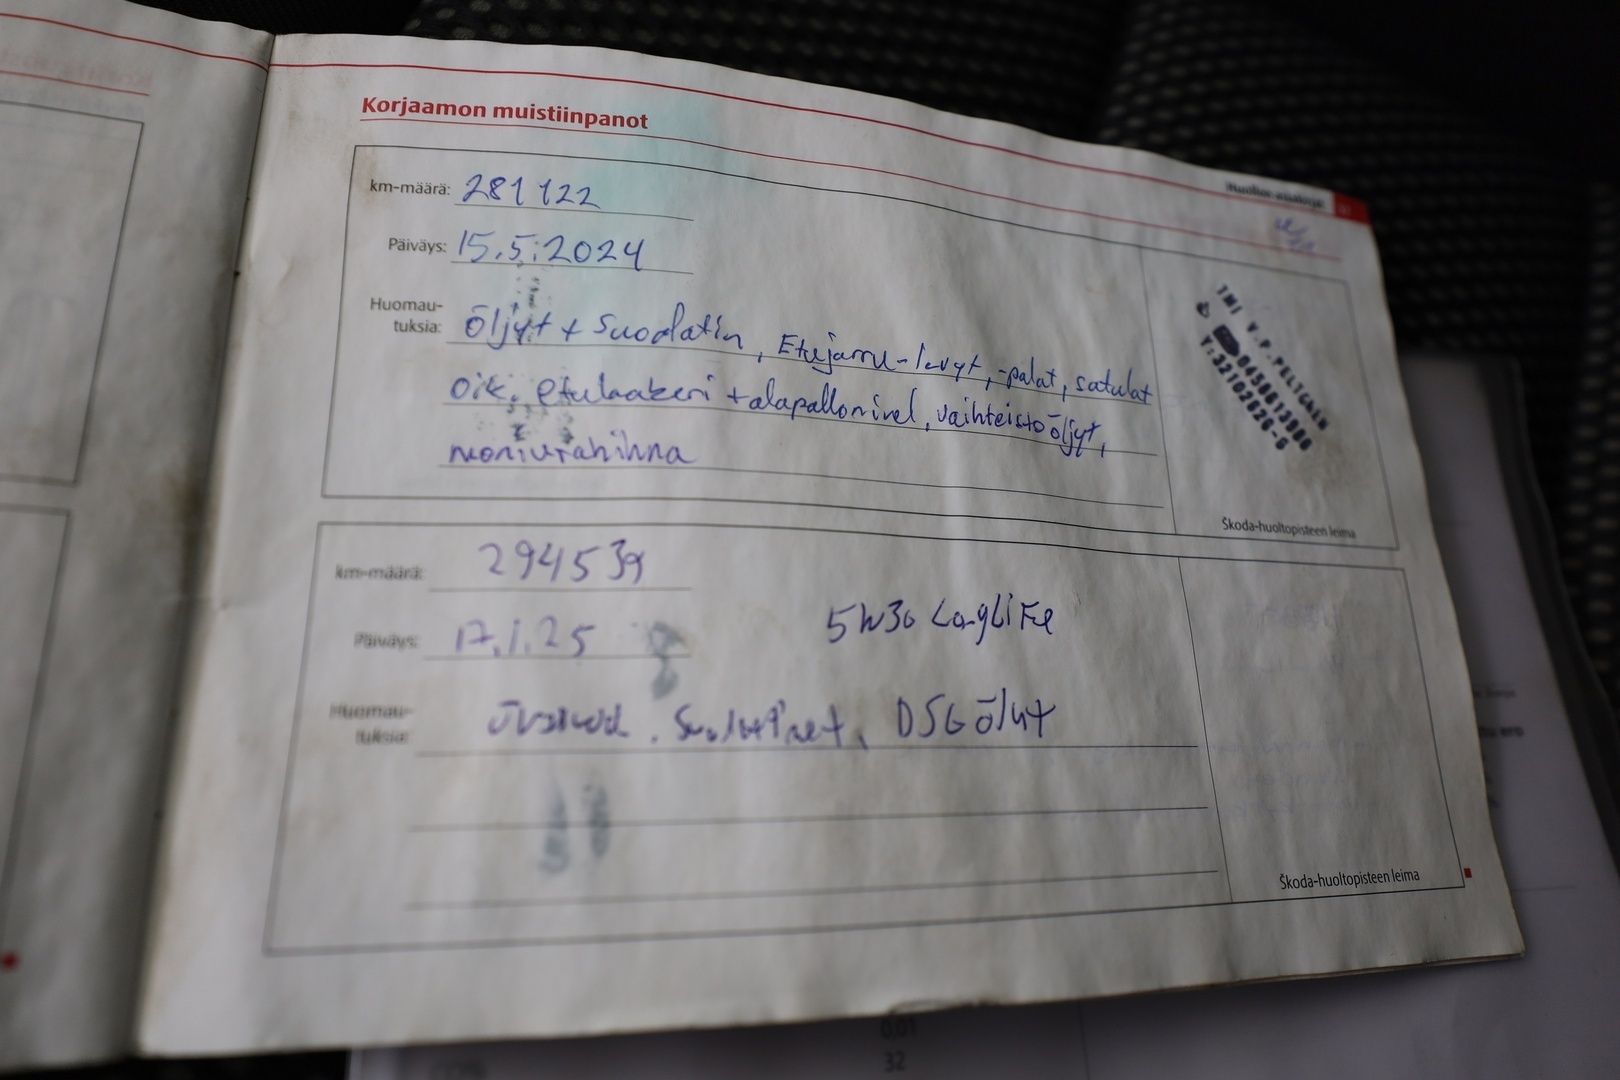 Korjaamon muistiinpanot
km-määrä: 281 122
Päiväys: 15.5.2024
Huomau-
tuksia: öljyt + suodatin, Etujarru-levyt, -palat, satulat
oik. etulaakeri + alapallonivel, vaihteistoöljyt,
moniurahihna
TMI V.P.PELTONEN
Škoda-huoltopisteen leima
km-määrä: 294539
Päiväys: 17.1.25
5W30 LongLiFe
Huomau-
tuksia: Suodattimet, DSG öljyt
Škoda-huoltopisteen leima
0,01
32